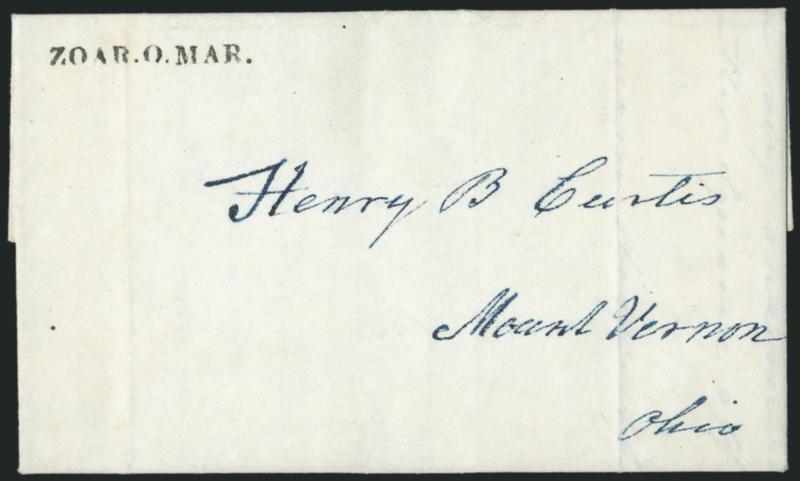 ZOAR.O.MAR.
Henry B Curtis
Mount Vernon
Ohio